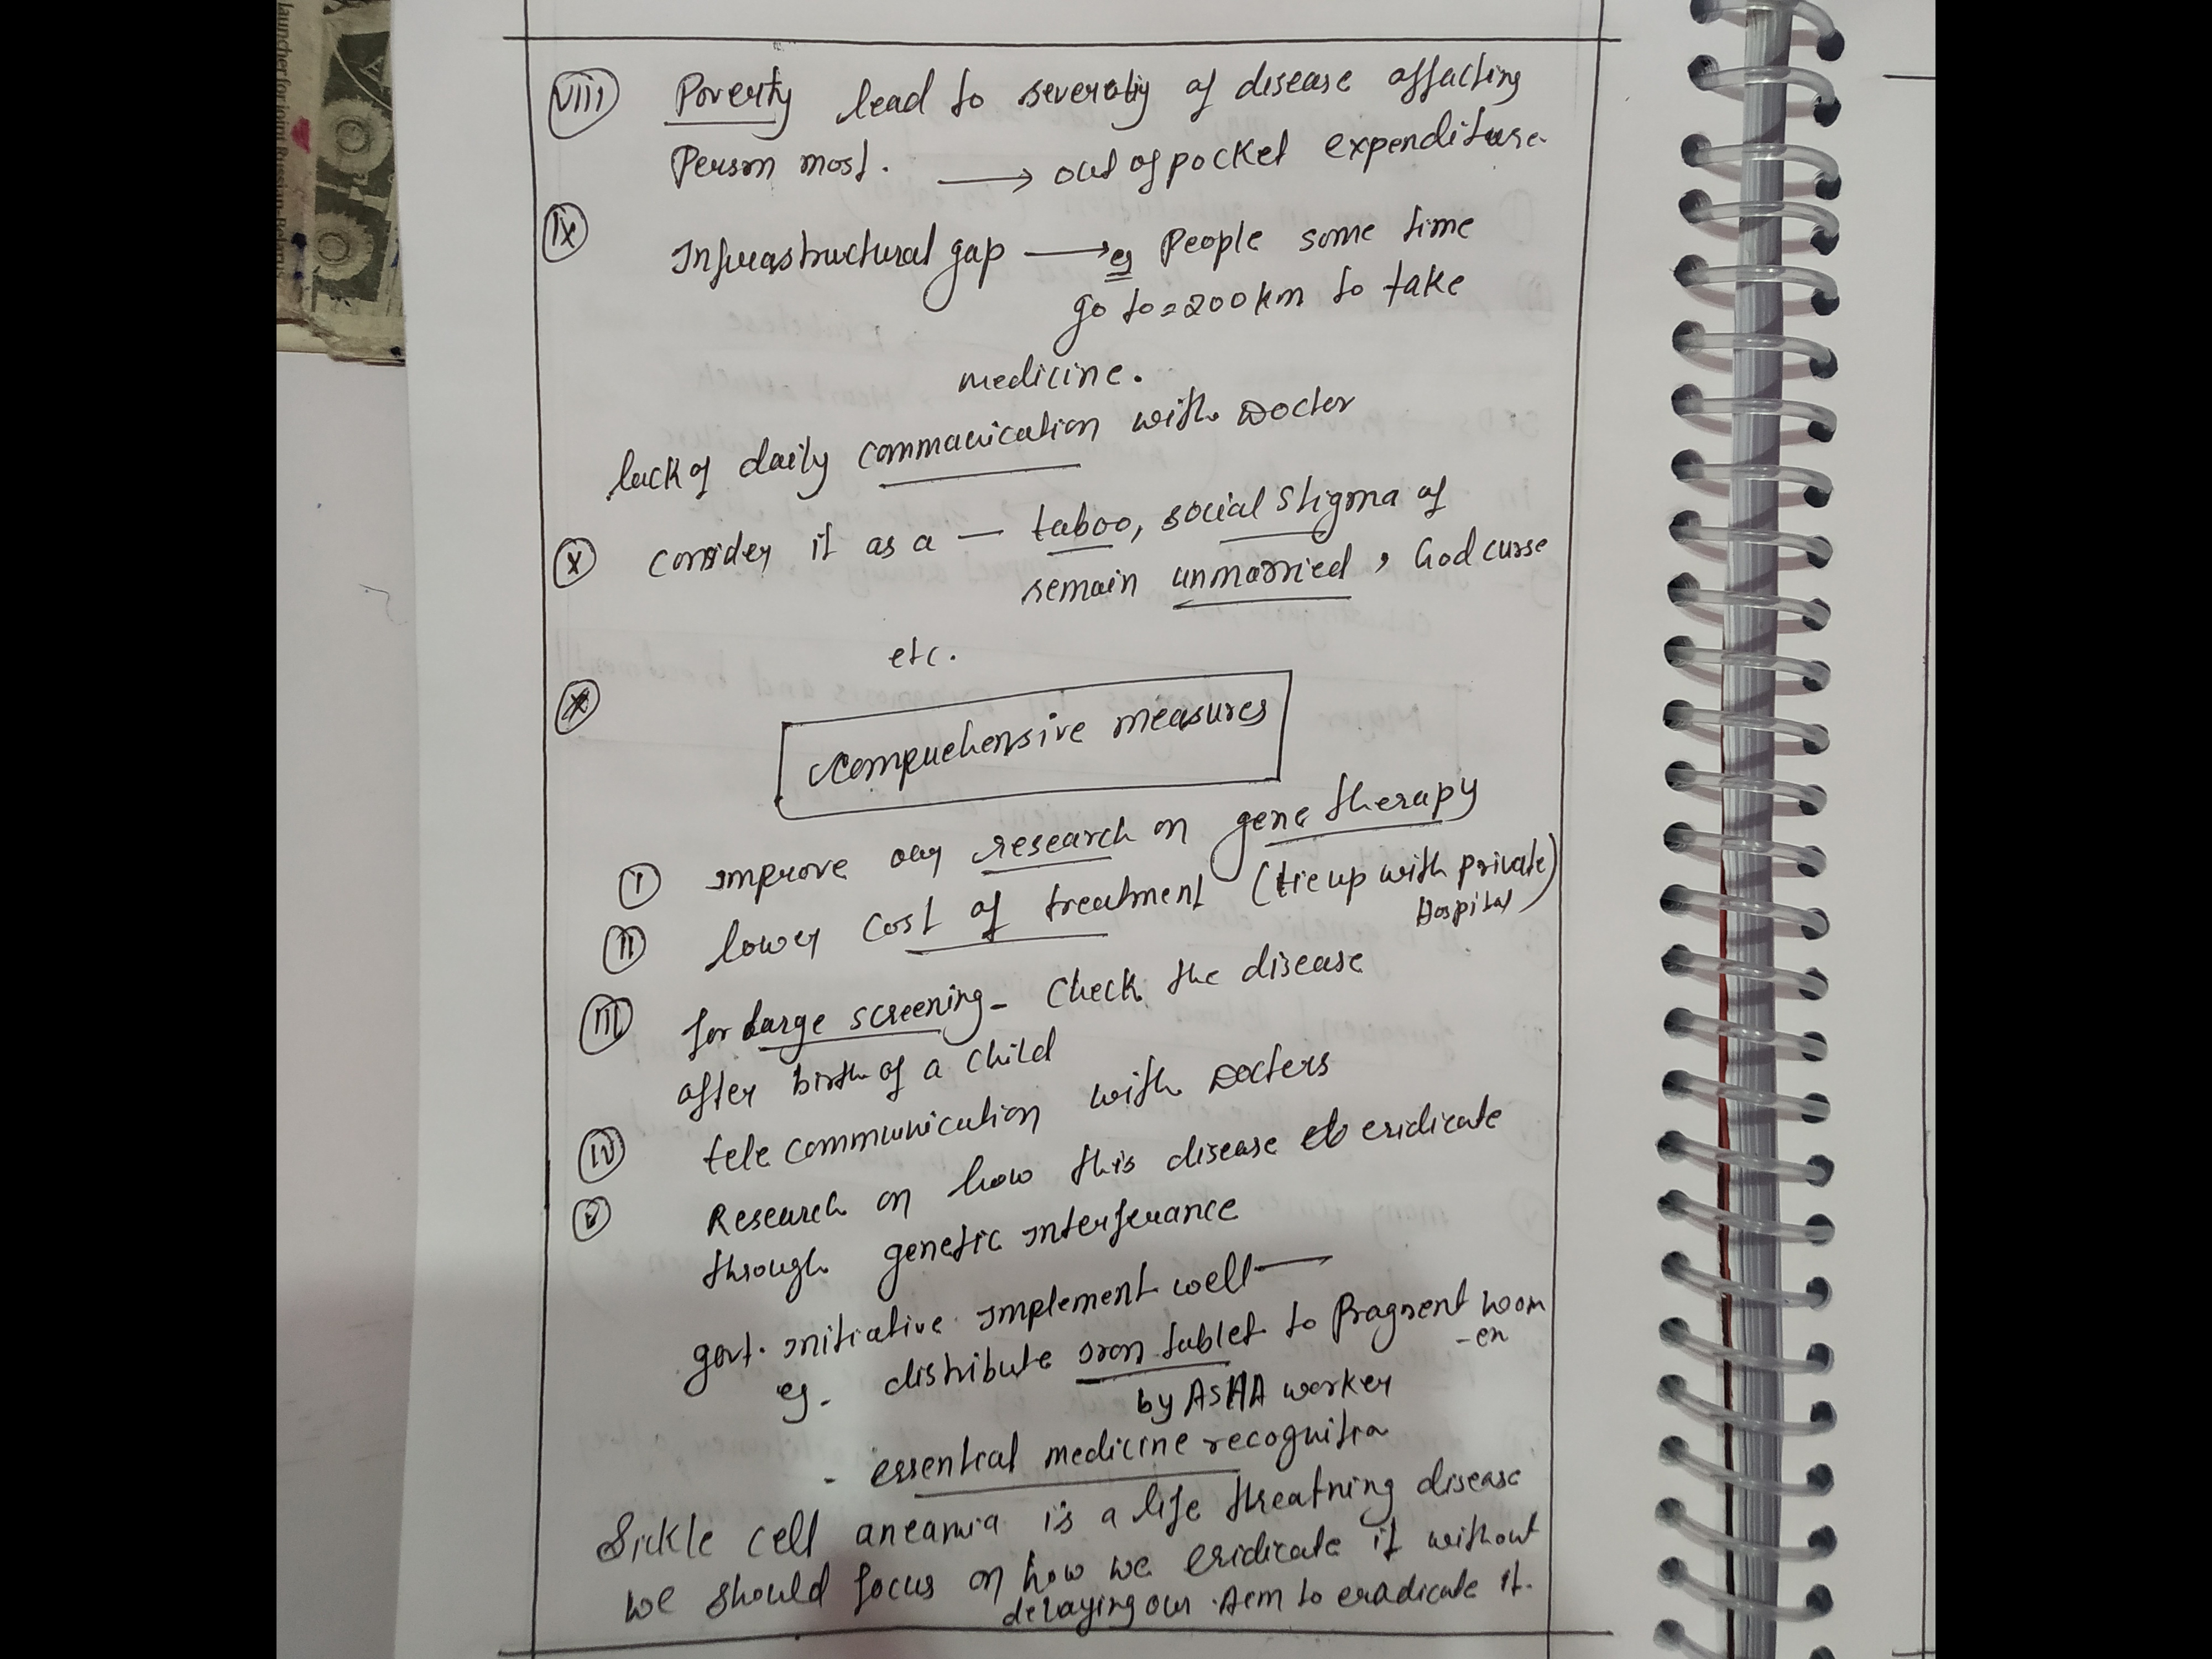 launcher for joint Russian-Belarus
viii Poverty lead to severatiy of disease affacting
Person most. → out of pocket expenditure.
ix Infrastructural gap → eg People some time
go to = 200 km to take
medicine.
lack of daily commauication with Doctor
x consider it as a — taboo, social stigma of
remain unmarried, God curse
etc.
Comprehensive measures
I Improve our research on gene therapy
II lower cost of treatment (tie up with private)
Hospital
III for large screening - Check the disease
after birth of a child
IV tele communication with Doctors
V Research on how this disease to eridicate
through genetic interferance
govt. initiative implement well →
eg. distribute iron tablet to Pragnent wom
-en
by ASHA worker
- essential medicine recognition
Sickle cell aneamia is a life threatning disease
we should focus on how we eridicate it without
delaying our Aem to eradicate it.